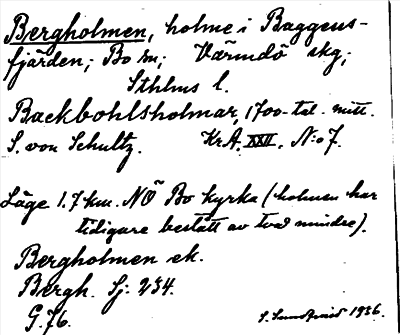 Bergholmen, holme i Baggens-
fjärden; Bo sn; Värmdö skg;
Sthlms l.
Backbohlsholmar, 1700-tal. mitt.
S. von Schultz. KrA. XXII. N:o 7.
Läge 1.7 km. NÖ Bo kyrka (holmen har
tidigare bestått av två mindre).
Bergholmen ek.
Bergh. Sj: 234.
G. 76.
1936.